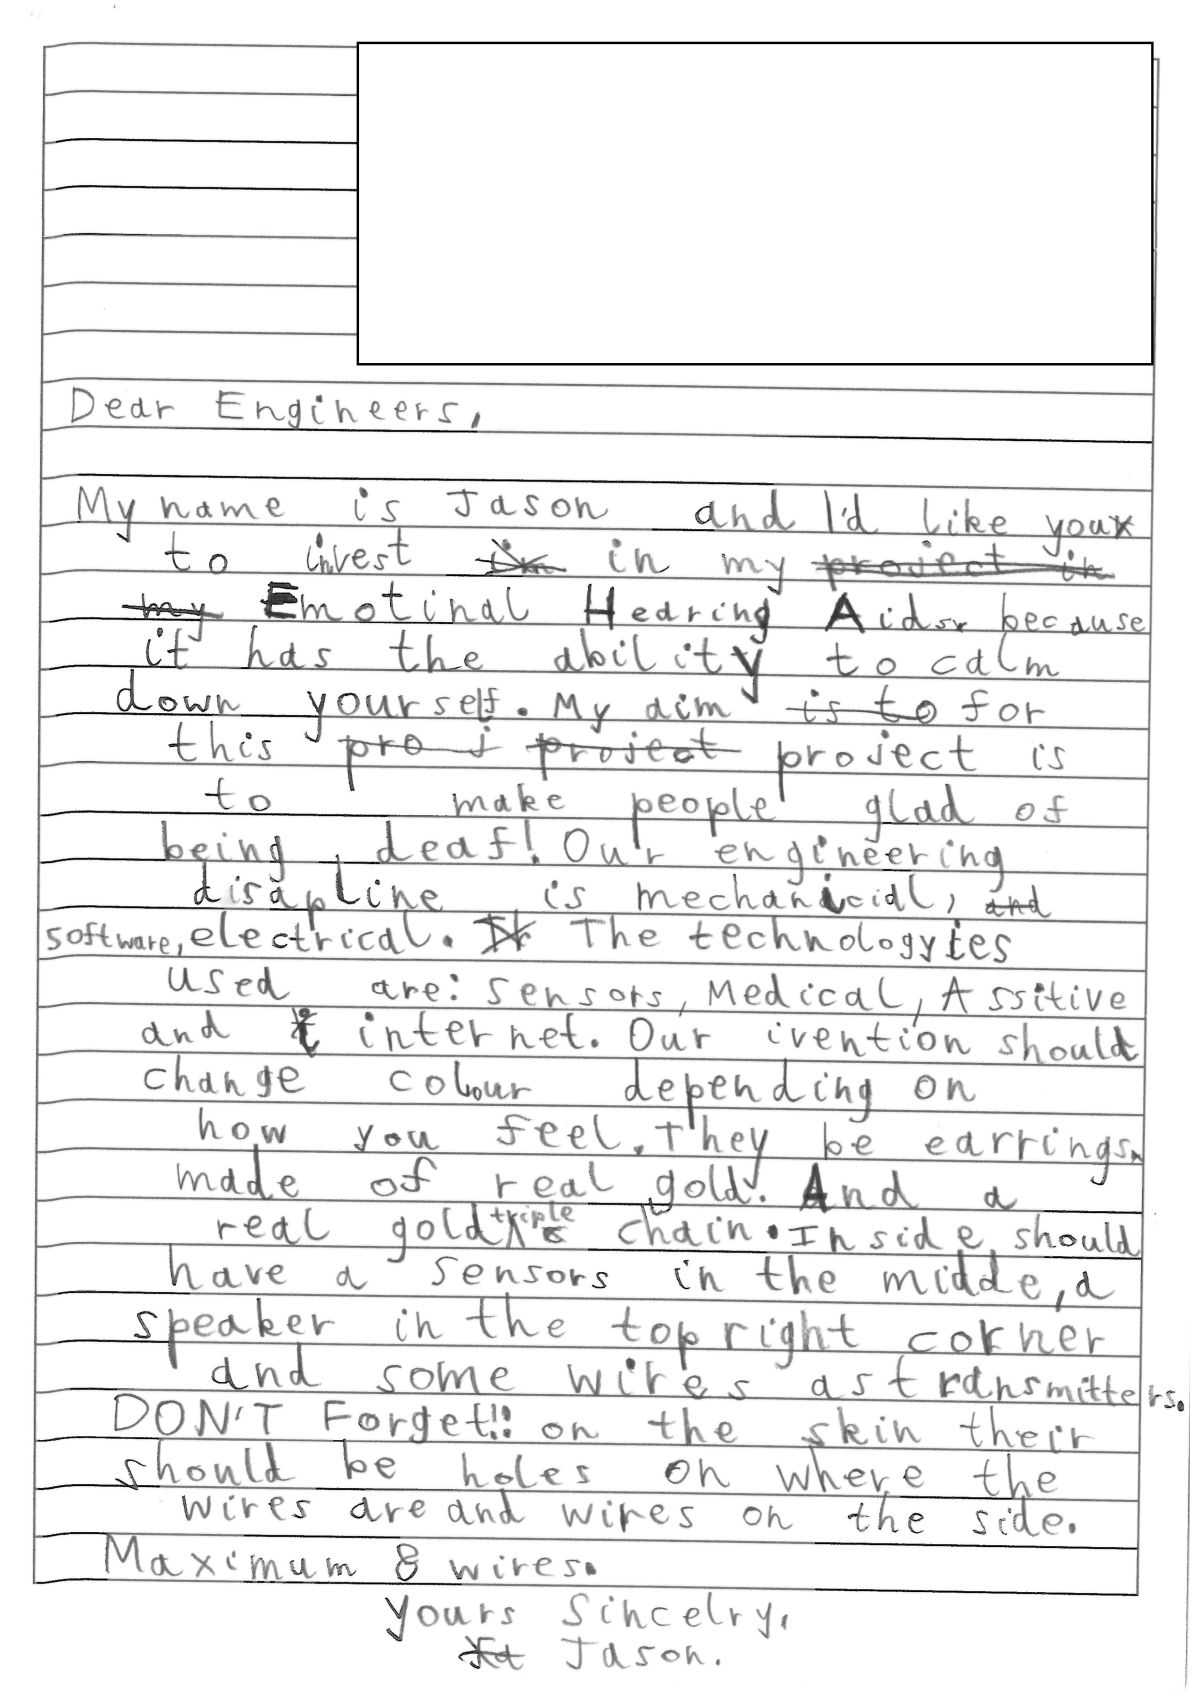 Dear Engineers,
My name is Jason and I'd like you
to invest in in my project in
my Emotinal Hearing Aids because
it has the ability to calm
down yourself. My aim is to for
this pro j project project is
to make people glad of
being deaf! Our engineering
disapline is mechanicial, and
software, electrical. The technologyies
used are: sensors, Medical, Assitive
and internet. Our ivention should
change colour depending on
how you feel. They be earrings
made of real gold. And a
real gold triple chain. Inside should
have a sensors in the midde, a
speaker in the top right corner
and some wires as transmitters.
DON'T Forget!! on the skin their
should be holes on where the
wires are and wires on the side.
Maximum 8 wires.
yours Sincelry,
Jason.